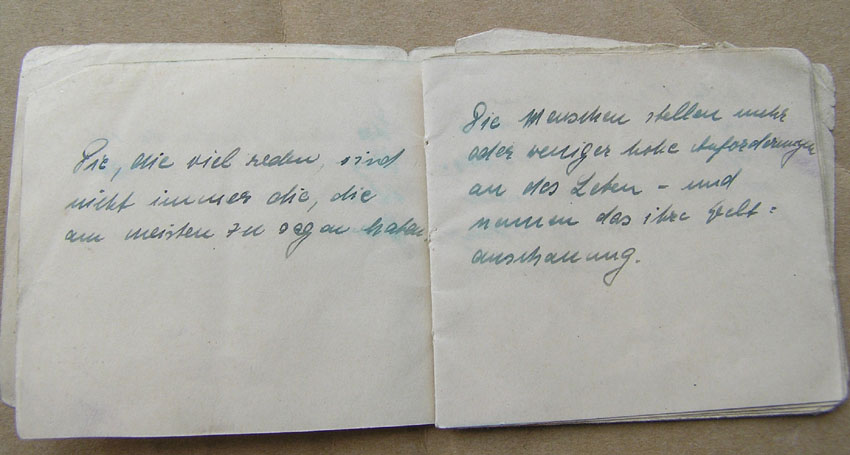 Die, die viel reden, sind
nicht immer die, die
am meisten zu sagen haben.
Die Menschen stellen mehr
oder weniger hohe Anforderungen
an das Leben - und
nennen das ihre Welt=
anschauung.